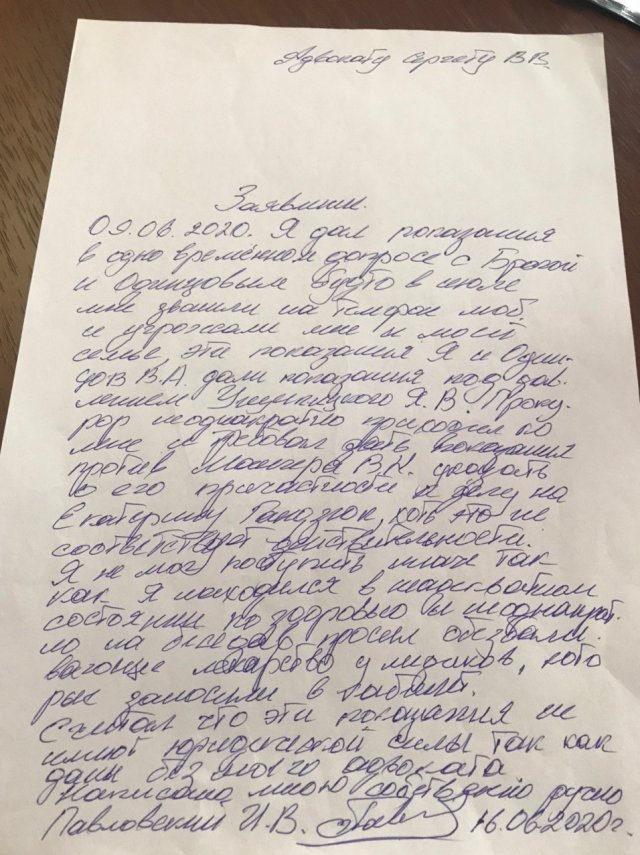 Адвокату Сергету В.В.
Заявлинии.
09.06.2020. Я дал показания
в одно времённом допросе с Брагой
и Одинцовым будто в июле
мне звонили на телефон моб.
и угрожали мне и моей
семье, эти показания Я и Один-
цов В.А. дали показания под дав-
лением Умницкого Я.В. Проку-
рор неоднакратно приходил ко
мне и требовал дать показания
против Мангера В.Н. указать
о его причастности к делу на
Екатерину Гандзюк, хоть это не
соответствует действительности.
Я не мог поступить иначе так
как Я находился в неадекватном
состоянии по здоровью и неоднакрат-
но на беседах просил обезбали-
вающие лекарство у медиков, кото
рые заносили в кабинет.
Считаю что эти показания не
имеют юридической силы так как
даны без моего адвоката
Написано мною собственно ручно
Павловский И.В. 16.06.2020г.